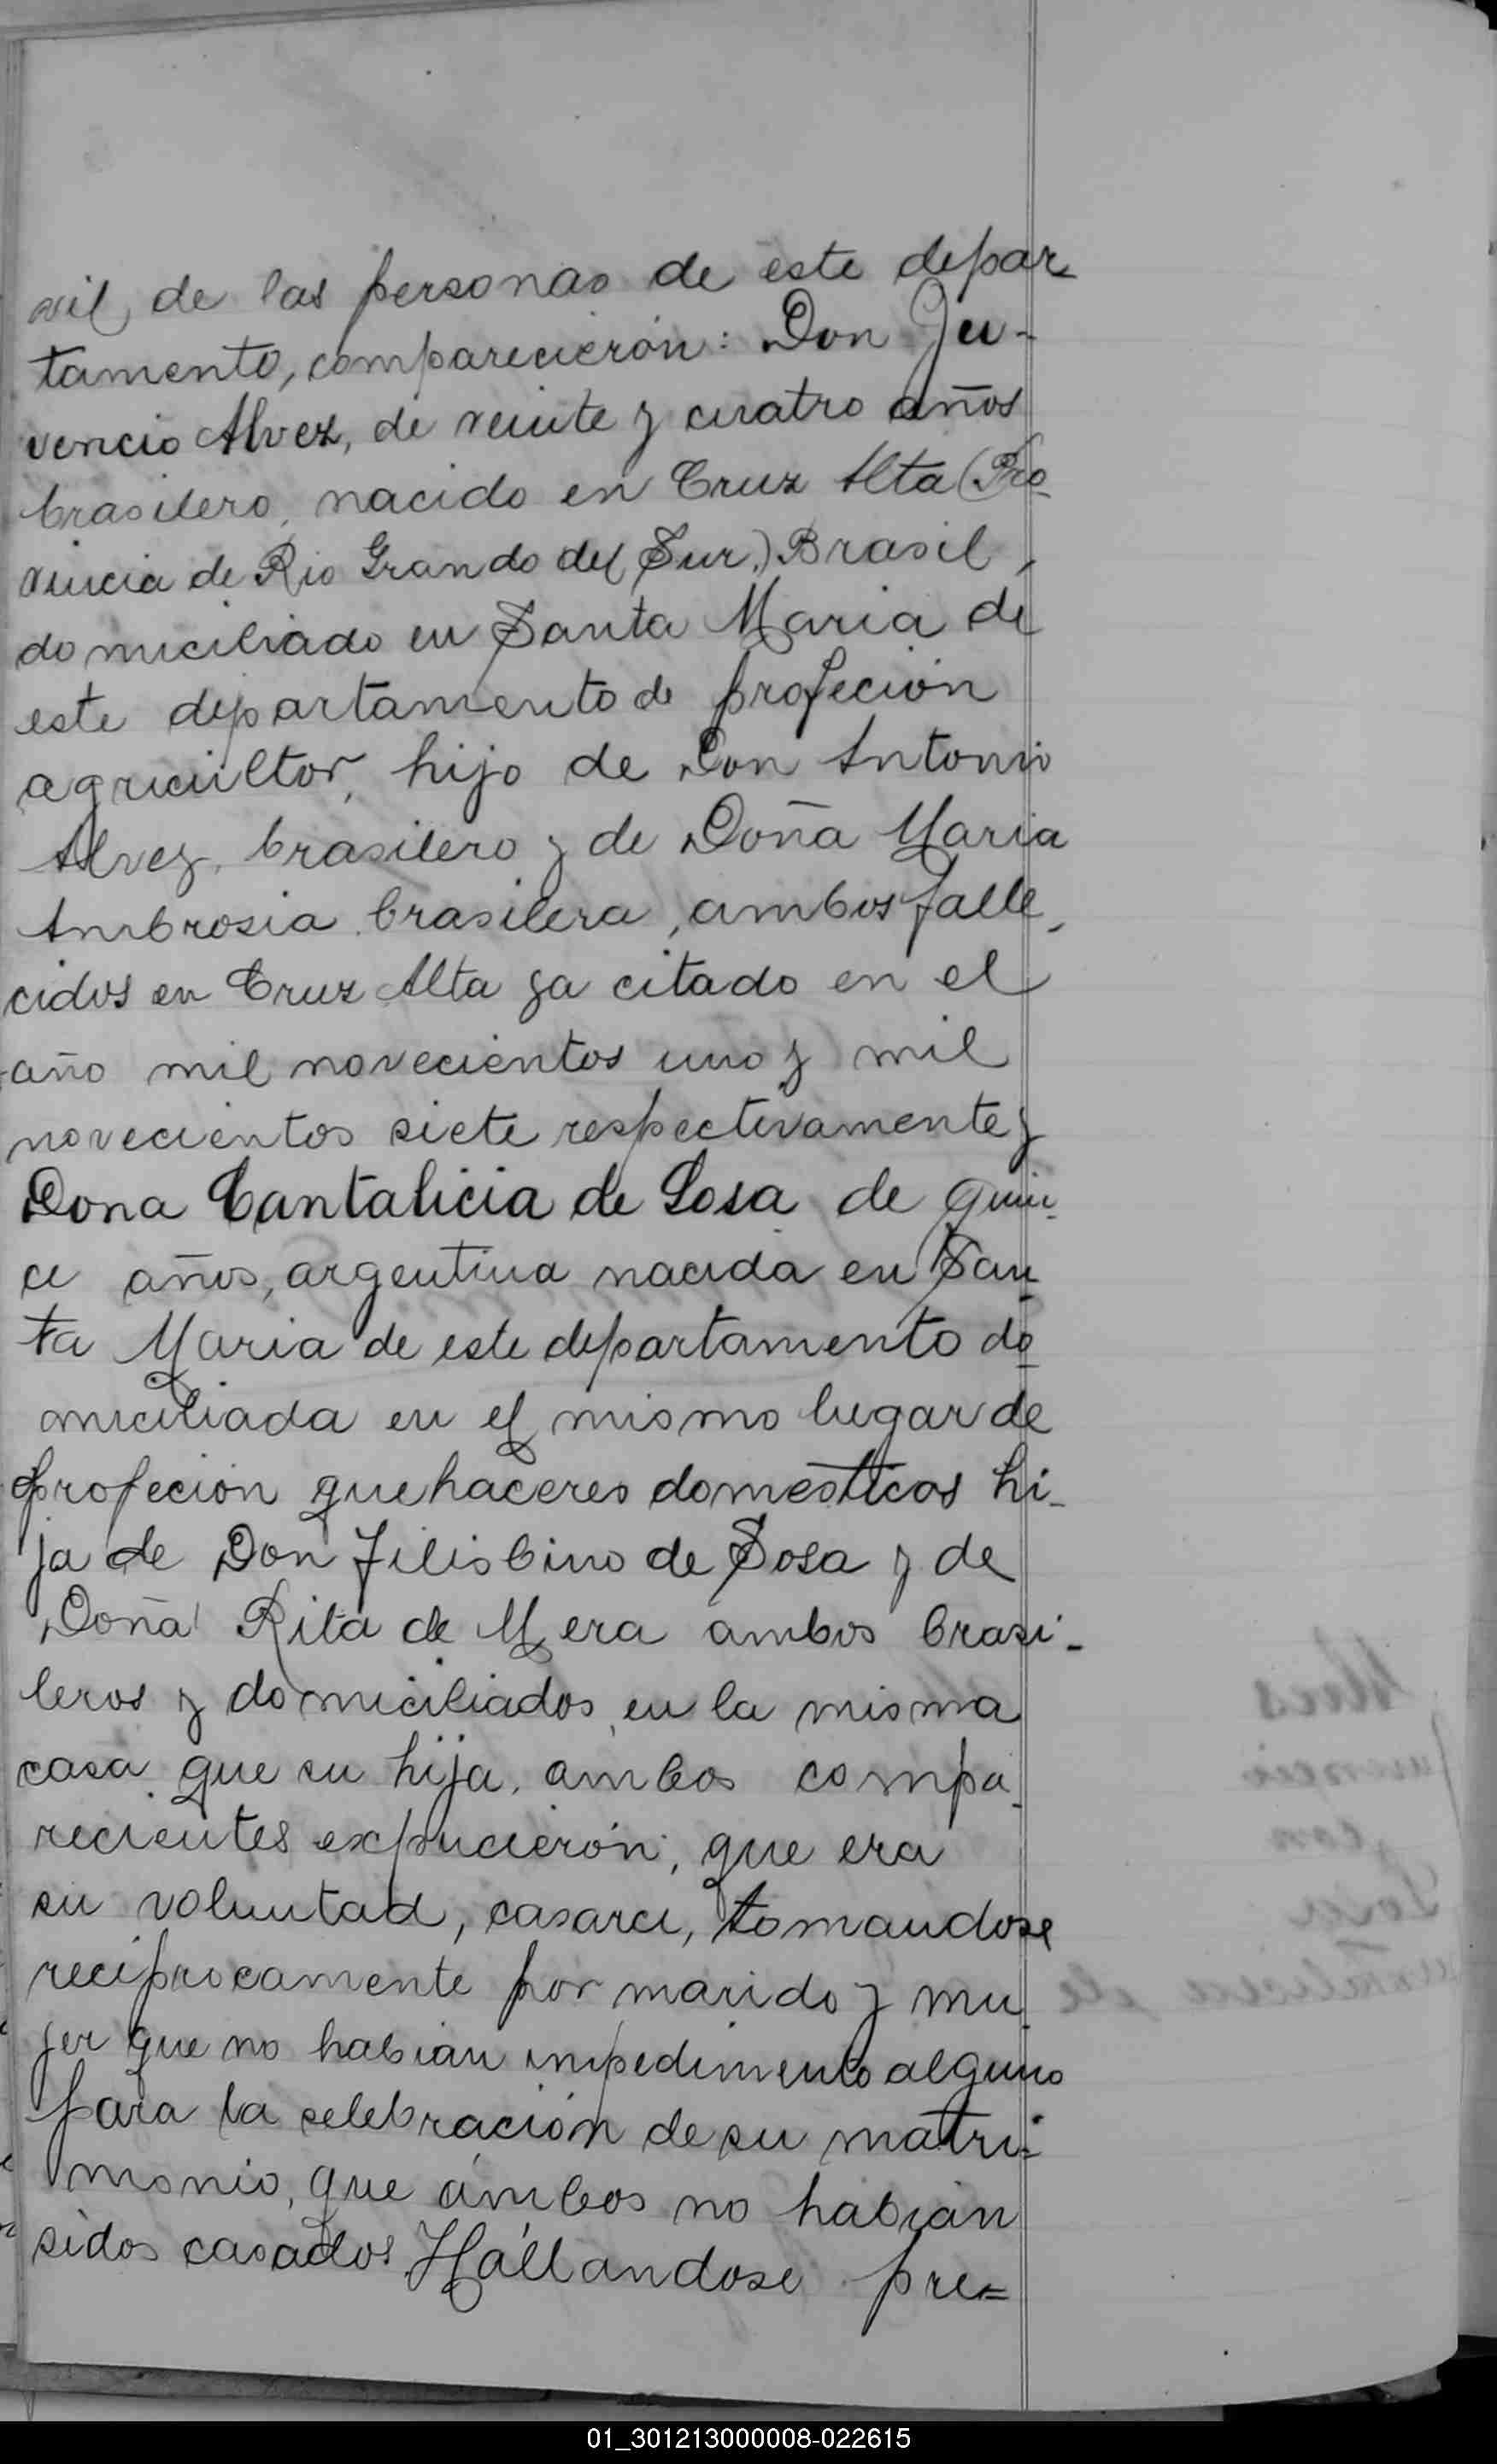 vil, de las personas de este depar
tamento, comparecierón: Don Ju-
vencio Alvez, de veinte y cuatro años
brasilero, nacido en Cruz Alta (Pro-
vincia de Rio Grando del Sur.) Brasil,
domiciliado en Santa Maria de
este departamento de profeción
agricultor, hijo de Don Antonio
Alvez, brasilero y de Doña Maria
Ambrosia brasilera, ambos falle-
cidos en Cruz Alta ya citado en el
año mil novecientos uno y mil
novecientos siete respectivamente y
Dona Cantalicia de Sosa de quin-
ce años, argentina nacida en San-
ta Maria de este departamento do-
miciliada en el mismo lugar de
profeción quehaceres domésticos hi-
ja de Don Filisbino de Sosa y de
Doña Rita de Mera ambos brasi-
leros y domiciliados en la misma
casa que su hija, ambos compa-
recientes expucierón; que era
su voluntad, casarce, tomandose
reciprocamente por marido y mu-
jer que no habian impedimento alguno
para la selebración de su matri-
monio, que ámbos no habian
sidos casados Hállandose pre=
Alves
Juvencio
con
Sosa
Cantalicia de
01_301213000008-022615